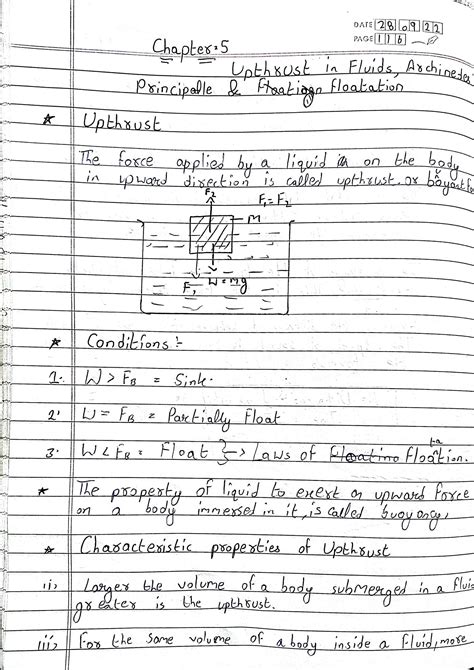 DATE 28 09 22
PAGE 116
Chapter:5
Upthrust in Fluids, Archimedes
Principalle & Floatation
* Upthrust
The force applied by a liquid on the body
in upward direction is called upthrust. or
F2
F1=F2
M
F1
W=mg
* Conditions:-
1. W > FB = Sink.
2. W = FB = Partially Float
3. W < FB = Float } → Laws of Floatation.
* The property of liquid to exert an upward force
on a body immersed in it, is called buoyancy,
* Characteristic properties of Upthrust
ii) Larger the volume of a body submerged in a fluid
greater is the upthrust.
iii) For the same volume of a body inside a fluid, more